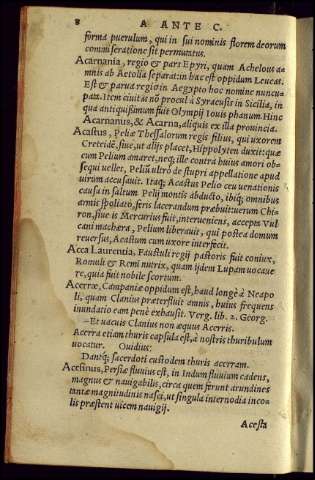 8 A ANTE C.
forma puerulum, qui in sui nominis florem deorum
commiseratione sit permutatus.
Acarnania, regio & pars Epyri, quam Achelous a-
mnis ab Aetolia separat: in hac est oppidum Leucas.
Est & parua regio in Aegypto hoc nomine nuncu-
pata. Item ciuitas nō procul à Syracusis in Sicilia, in
qua antiquißimum fuit Olympij Iouis phanum. Hinc
Acarnanus, & Acarna, aliquis ex illa prouincia.
Acastus, Peliæ Thessalorum regis filius, qui uxorem
Creteidē, siue, ut alijs placet, Hippolyten duxit: quæ
cum Pelium amaret, neq; ille contrà huius amori ob-
sequi uellet, Peliū ultrò de stupri appellatione apud
uirum accusauit. Itaq; Acastus Pelio ceu uenationis
causa in saltum Pelij montis abducto, ibiq; omnibus
armis spoliato, feris lacerandum præbuit: uerum Chi-
ron, siue is Mercurius fuit, interueniens, accepta Vul
cani machæra, Pelium liberauit, qui postea domum
reuersus, Acastum cum uxore interfecit.
Acca Laurentia, Faustuli regij pastoris fuit coniux,
Romuli & Remi nutrix, quam ijdem Lupam uocaue
re, quia fuit nobile scortum.
Acerræ, Campaniæ oppidum est, haud longè à Neapo
li, quam Clanius præterfluit amnis, huius frequens
inundatio eam penè exhausit. Verg. lib. 2. Georg.
–Et uacuis Clanius non æquus Acerris.
Acerra etiam thuris capsula est, à nostris thuribulum
uocatur. Ouidius:
Dantq; sacerdoti custodem thuris acerram.
Acesinus, Persiæ fluuius est, in Indum fluuium cadens,
magnus & nauigabilis, circa quem ferunt arundines
tantæ magniudinis nasci, ut singula internodia inco-
lis præstent uicem nauigij.
Acesta